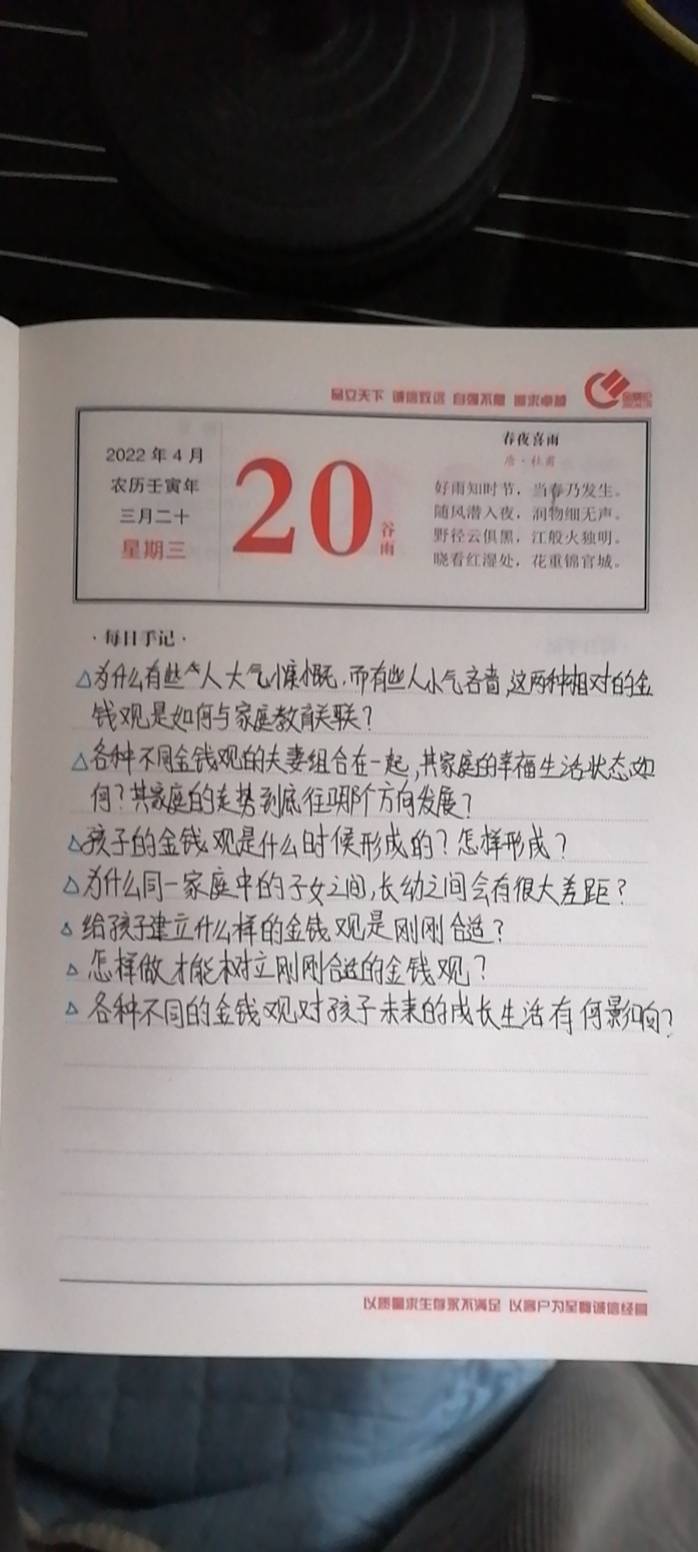 品立天下 诚信致远 自强不息 追求卓越
2022年4月
农历壬寅年
三月二十
星期三
20
谷雨
春夜喜雨
唐·杜甫
好雨知时节，当春乃发生。
随风潜入夜，润物细无声。
野径云俱黑，江船火独明。
晓看红湿处，花重锦官城。
·每日手记·
△为什么有些人大气慷慨,而有些人小气吝啬,这两种相对的金
钱观是如何与家庭教育关联?
△各种不同金钱观的夫妻组合在一起,其家庭的幸福生活状态如
何?其家庭的走势到底往哪个方向发展?
△孩子的金钱观是什么时候形成的?怎样形成?
△为什么同一家庭中的子女之间,长幼之间会有很大差距?
△给孩子建立什么样的金钱观是刚刚合适?
△怎样做才能树立刚刚合适的金钱观?
△各种不同的金钱观对孩子未来的成长生活有何影响?
以质量求生存永不满足 以客户为至尊诚信经营